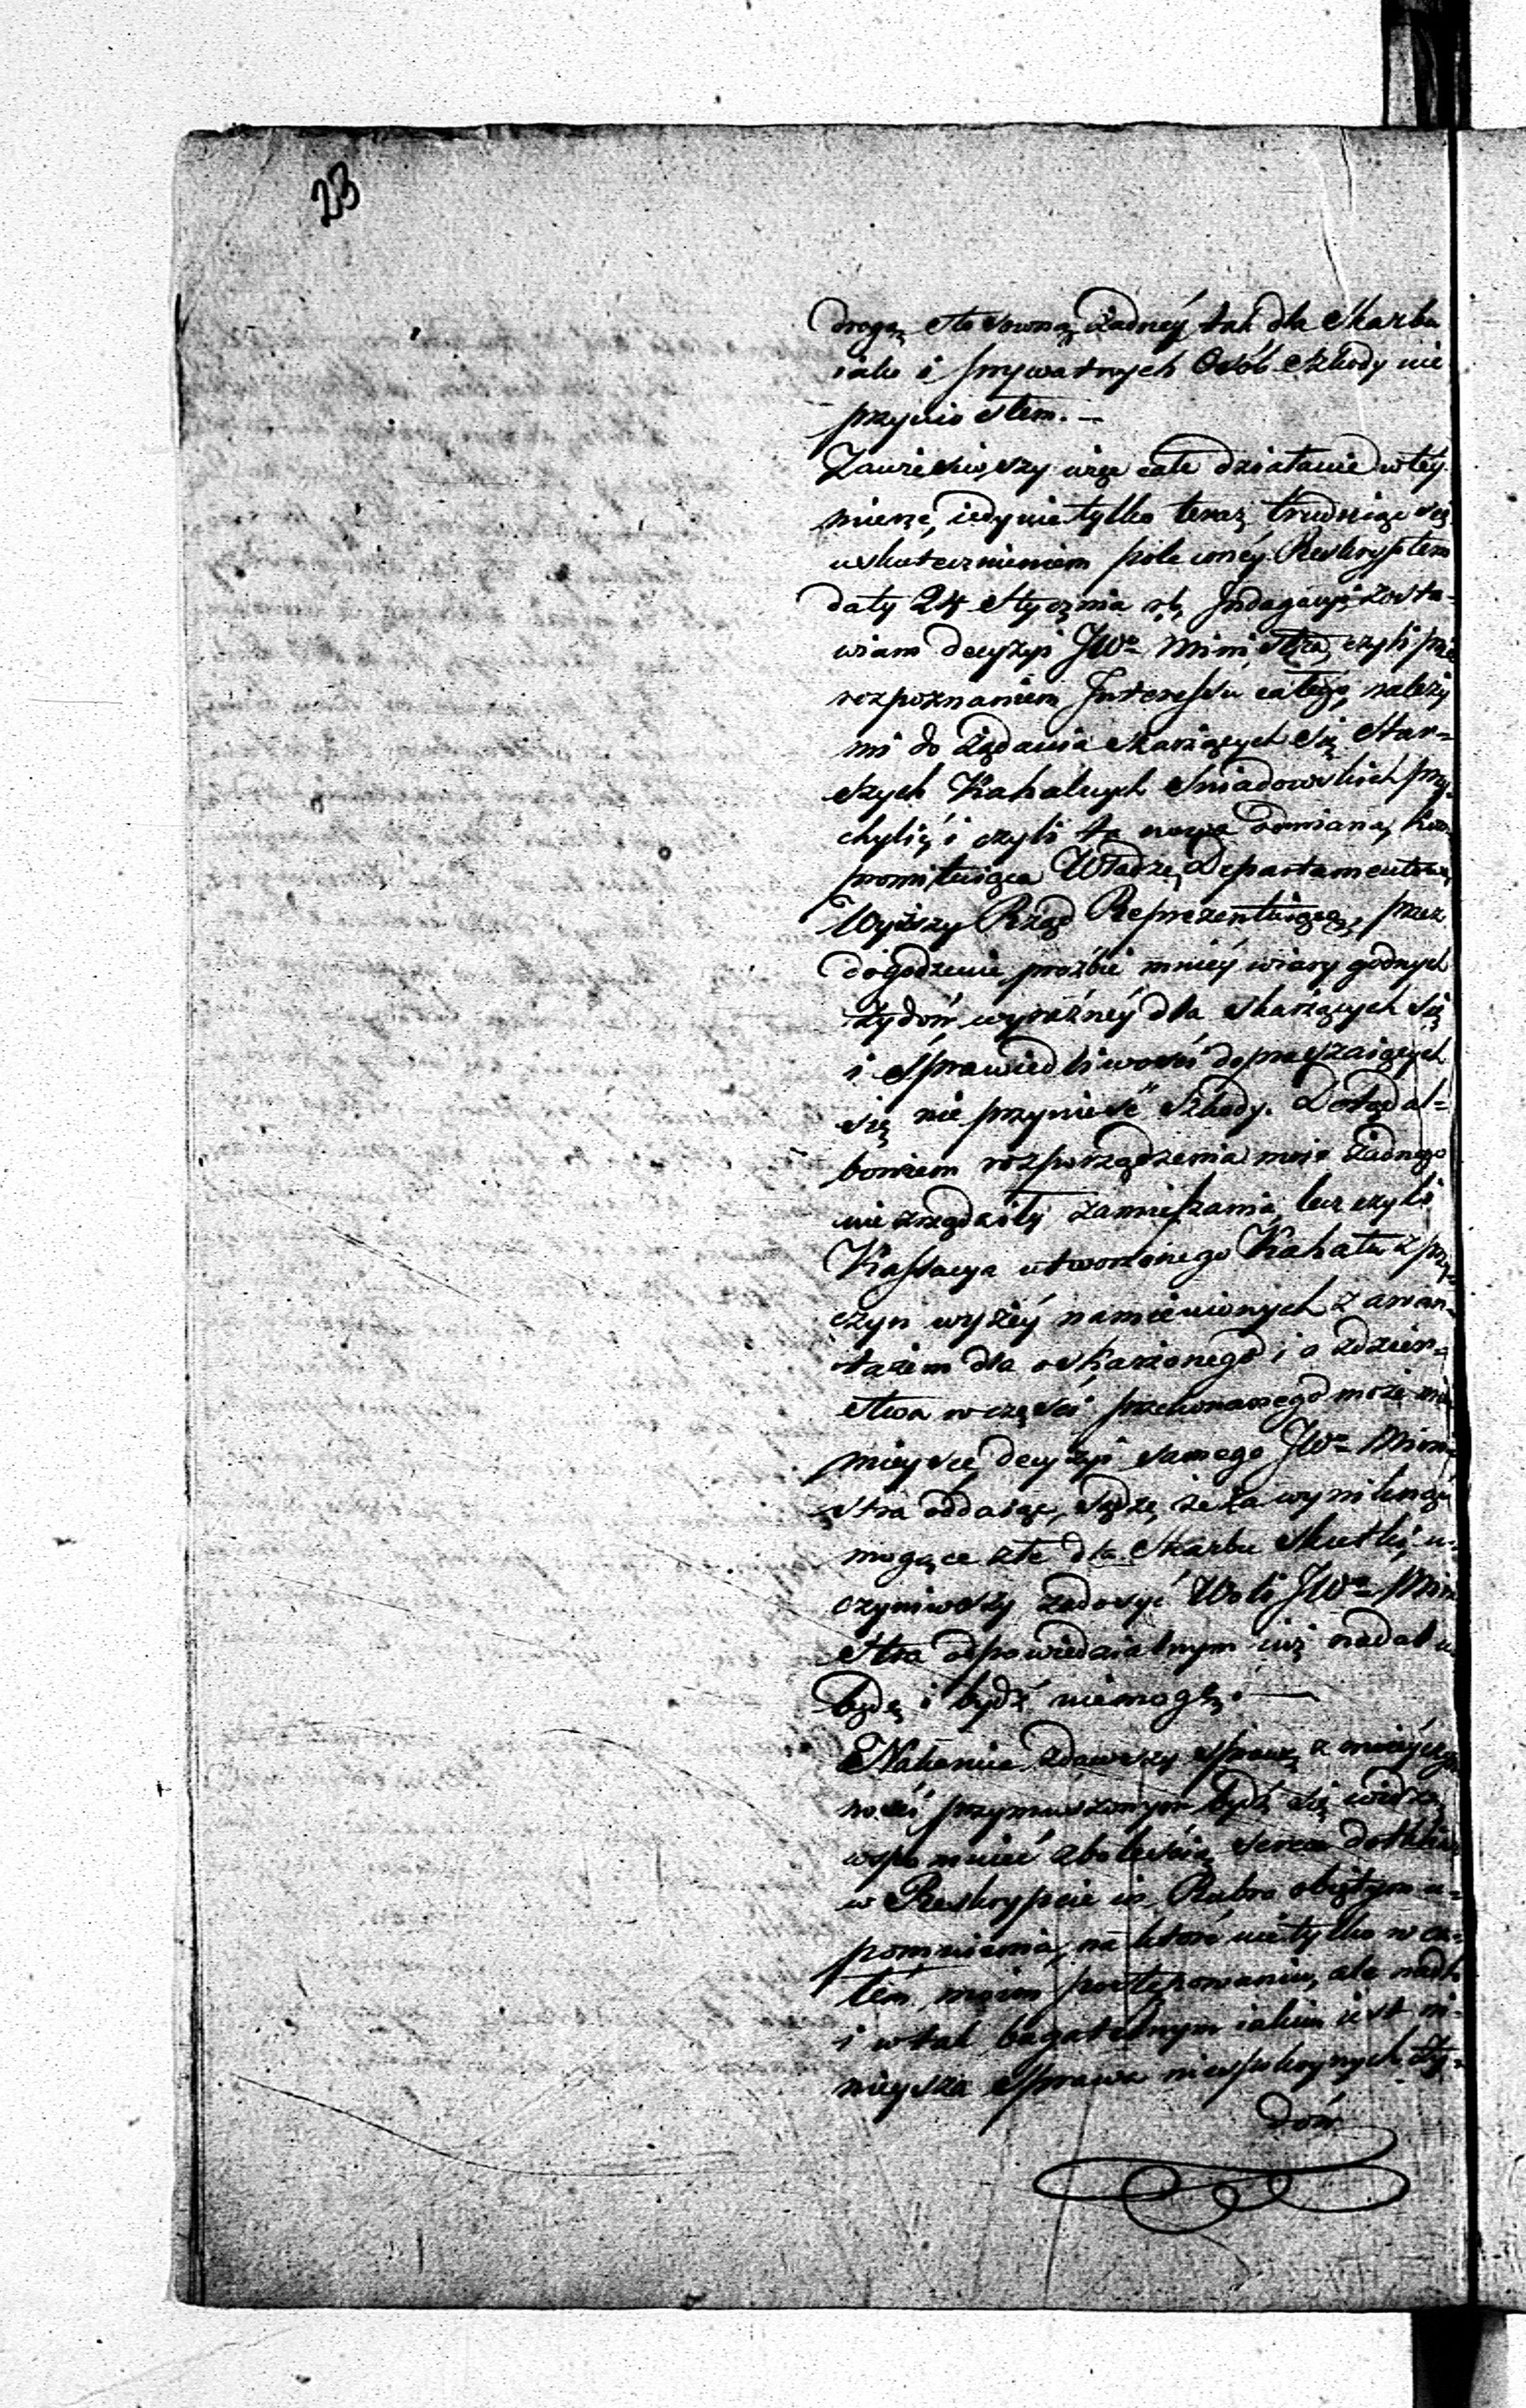 23
drogą stosowną żadney tak dla Skarbu
iako i prywatnych Osób szkody nie
przyniosłem. —
Zawiesiwszy więc całe działanie w tey
mierze, iedynie tylko teraz trudniąc się
uskutecznieniem poleconey Reskryptem
daty 24 Stycznia rb. Indagacyi zosta-
wiam decyzyi JWo Ministra, czyli
rozpoznaniem Interessu całego, należy
mi do żądania skarżących się Star=
szych Kahalnych Sniadowskich przy-
chylić i czyli ta nowa zmiana,
promituiąca Władzę Departamentową
Wyższy Rząd Reprezentuiącą, przez
dogodzenie prośbie mniey wiary godnych
Żydów wyraźney dla skarżących się
i sprawiedliwości dopraszaiących
się nie przyniesie szkody. Dotąd al=
bowiem rozporządzenia moie żadnego
nie zrządziły zamieszania, lecz czyli
Kassacya utworzonego Kahału z przy=
czyn wyżey namienionych z awan=
tażem dla oskarżonego i o zdzier=
stwa w części przekonanego może mieć
mieysce, decyzyi samego JWo Mini
stra oddaiąc, sądzę, że za wyniknąć
mogące złe dla Skarbu skutki, u=
czyniwszy zadosyć Woli JWo Mini
stra odpowiedzialnym iuż nadal
będę i bydź niemogę. —
Nakoniec zdawszy sprawę z
ności przymuszonym bydź się widzę
wspomnieć z boleścią serca
w Reskrypcie in Rubro obiętym u=
pomnienia, na które nietylko w ca=
łém moim postępowaniu, ale nadto
i w tak bagatelnym iakim iest ni=
nieysza sprawa niespokoynych Ży=
dów